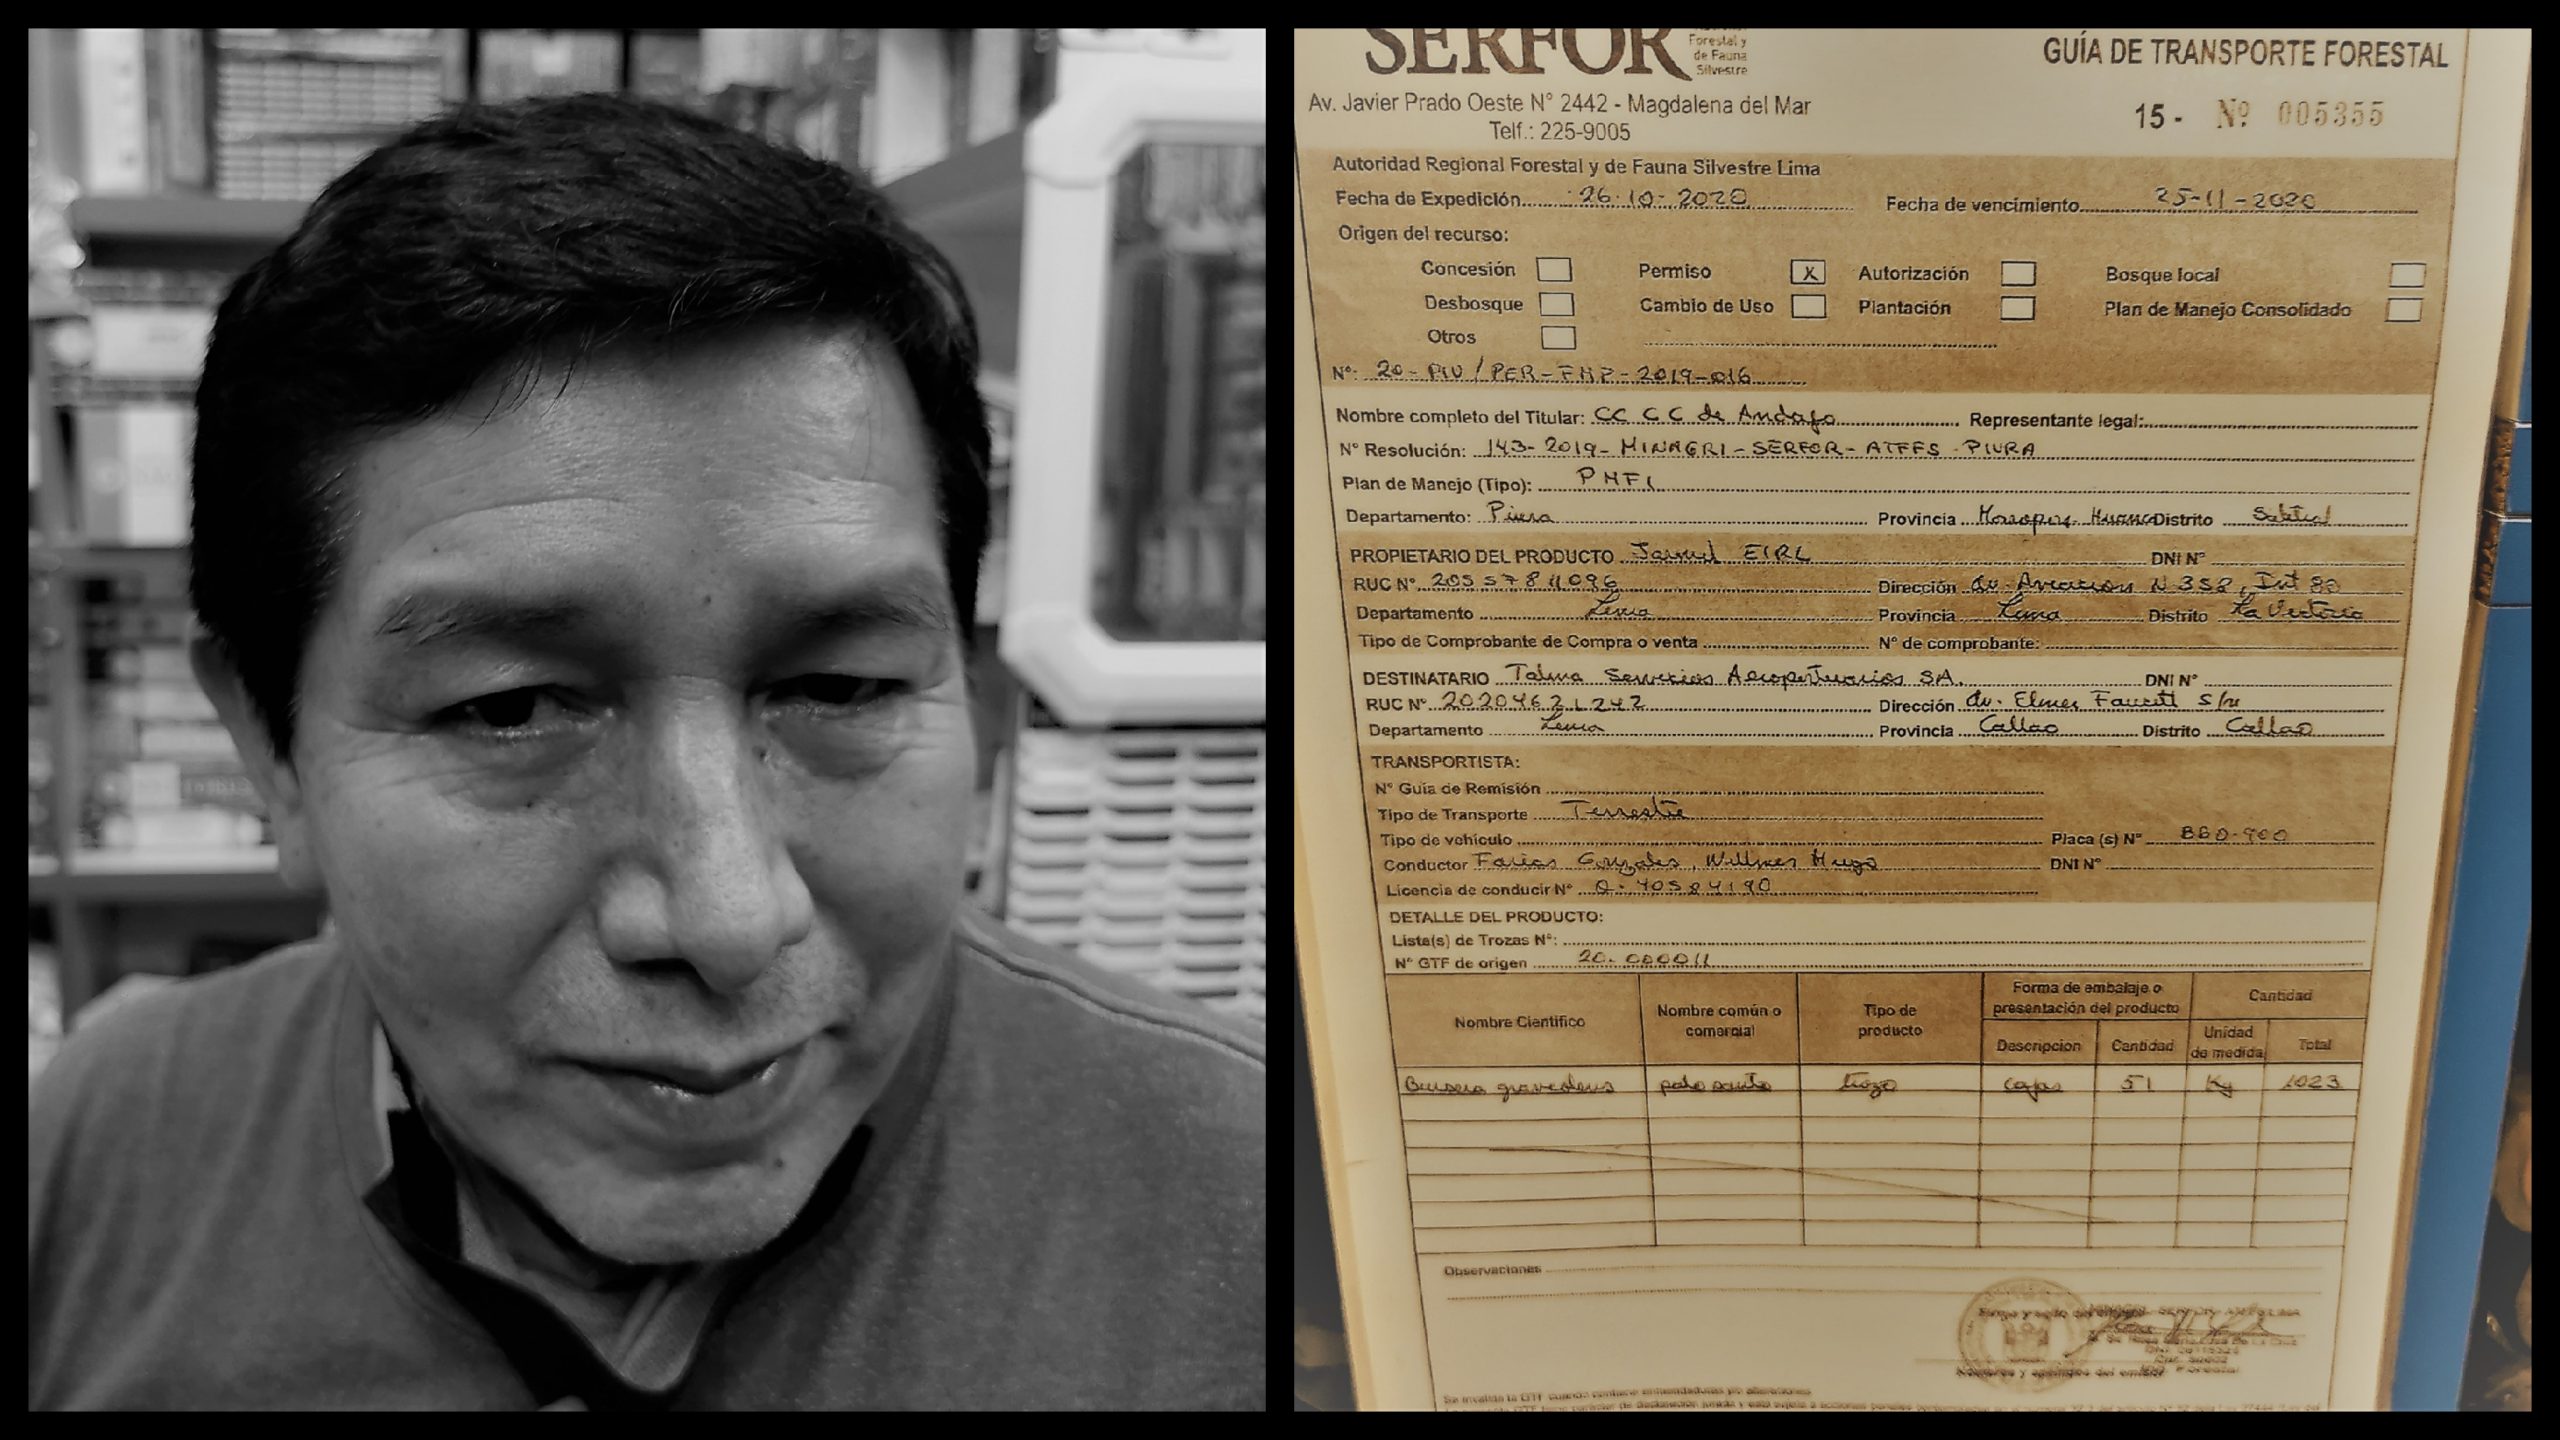 SERFOR
Forestal y
de Fauna
Silvestre
GUÍA DE TRANSPORTE FORESTAL
Av. Javier Prado Oeste N° 2442 - Magdalena del Mar
Telf.: 225-9005
15 - Nº 005355
Autoridad Regional Forestal y de Fauna Silvestre Lima
Fecha de Expedición 26-10-2020 Fecha de vencimiento 25-11-2020
Origen del recurso:
Concesión Permiso X Autorización Bosque local
Desbosque Cambio de Uso Plantación Plan de Manejo Consolidado
Otros
N°: 20-PIU/PER-FMP-2019-016
Nombre completo del Titular: CC CC de Andajo Representante legal:
N° Resolución: 143-2019-MINAGRI-SERFOR-ATFFS-PIURA
Plan de Manejo (Tipo): PMFI
Departamento: Piura Provincia Distrito Salitral
PROPIETARIO DEL PRODUCTO EIRL DNI N°
RUC N° 20557811096 Dirección Av. Aviacion N 358, Int 80
Departamento Lima Provincia Lima Distrito La Victoria
Tipo de Comprobante de Compra o venta N° de comprobante:
DESTINATARIO Talma Servicios Aeroportuarios SA. DNI N°
RUC N° 20204621242 Dirección Av. Elmer Faucett s/n
Departamento Lima Provincia Callao Distrito Callao
TRANSPORTISTA:
N° Guía de Remisión
Tipo de Transporte Terrestre
Tipo de vehículo Placa (s) N°
Conductor Farias Gonzales, Hugo DNI N°
Licencia de conducir N°
DETALLE DEL PRODUCTO:
Lista(s) de Trozas N°:
N° GTF de origen 20-000011
Nombre Científico Nombre común o comercial Tipo de producto Forma de embalaje o presentación del producto Cantidad
Descripcion Cantidad Unidad de medida Total
Bursera graveolens palo santo trozo cajas 51 Kg 1023
Observaciones
Nombres y apellidos del emisor
Se invalida la GTF cuando contiene enmendaduras y/o alteraciones